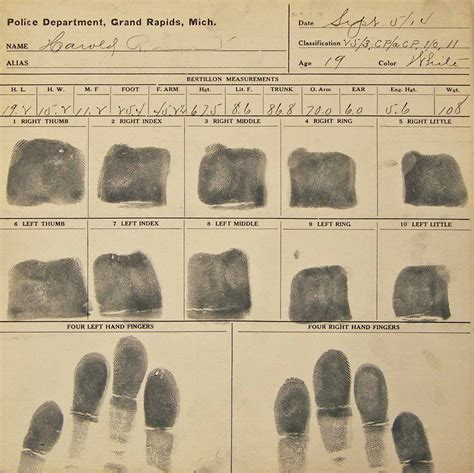 Police Department, Grand Rapids, Mich.
Date Sept 5/14
NAME Harold
Classification
ALIAS
Age 19 Color White
BERTILLON MEASUREMENTS
H. L. H. W. M. F FOOT F. ARM Hgt. Lit. F. TRUNK O. Arm EAR Eng. Hgt. Wgt.
19.2 15.2 11.2 25.4 67.5 8.6 86.8 70.0 6.0 5.6 108
1 RIGHT THUMB 2 RIGHT INDEX 3 RIGHT MIDDLE 4 RIGHT RING 5 RIGHT LITTLE
6 LEFT THUMB 7 LEFT INDEX 8 LEFT MIDDLE 9 LEFT RING 10 LEFT LITTLE
FOUR LEFT HAND FINGERS FOUR RIGHT HAND FINGERS